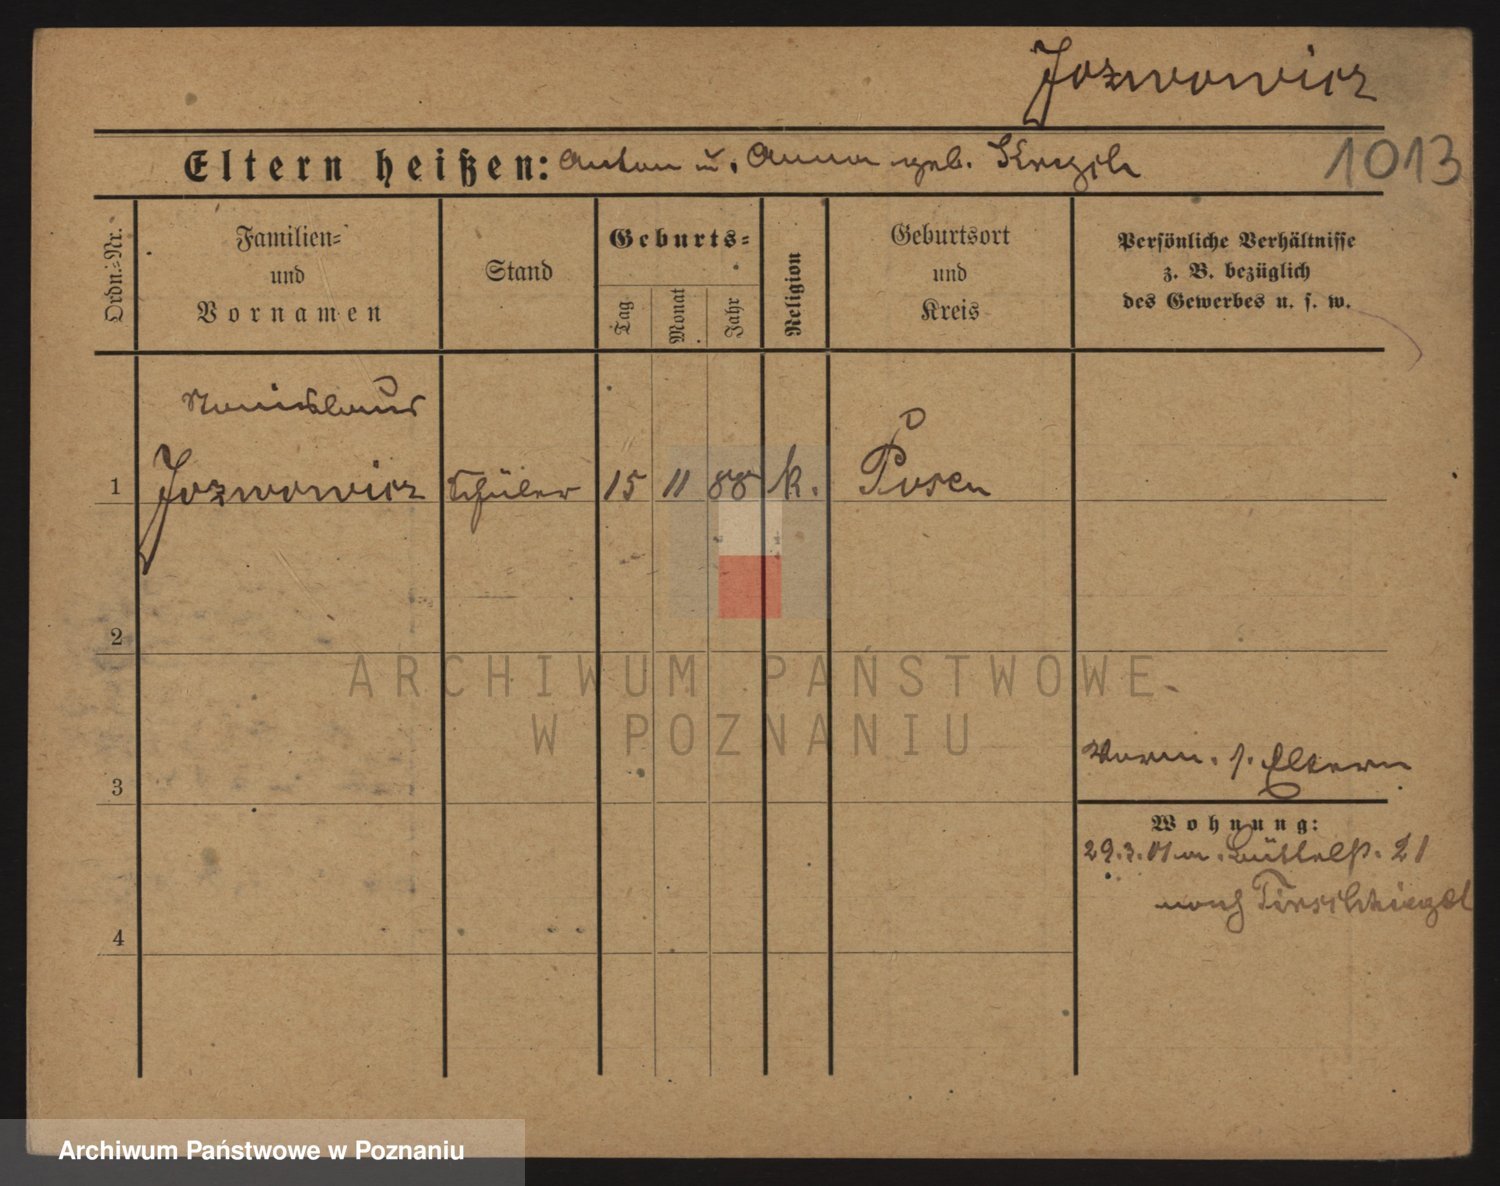 Jozwowicz
1013
Eltern heißen: Anton u. Anna geb.
Ordn.=Nr.
Familien=
und
Vornamen
Stand
Geburts=
Tag
Monat
Jahr
Religion
Geburtsort
und
Kreis
Persönliche Verhältnisse
z. B. bezüglich
des Gewerbes u. s. w.
Stanislaus
1 Jozwowicz Schüler 15 11 88 k. Posen
2
ARCHIWUM PAŃSTWOWE
W POZNANIU
Vorm. s. Eltern
3
Wohnung:
29.3.01 21
nach Tirschtiegel
4
Archiwum Państwowe w Poznaniu